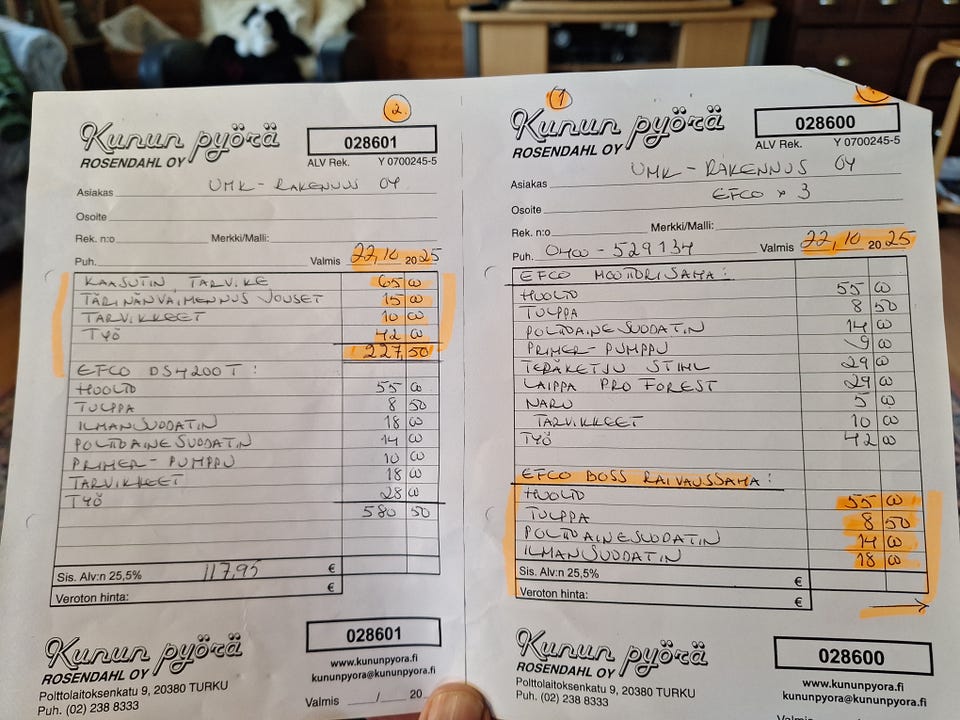 2.
Kunun pyörä
ROSENDAHL OY
028601
ALV Rek. Y 0700245-5
Asiakas UMK-RAKENNUS OY
Osoite
Rek. n:o Merkki/Malli:
Puh. Valmis 22.10 2025
KAASUTIN TARVIKE 65 00
TÄRINÄNVAIMENNUS JOUSET 15 00
TARVIKKEET 10 00
TYÖ 42 00
227,50
EFCO DS4200T:
HUOLTO 55 00
TULPPA 8 50
ILMANSUODATIN 18 00
POLTTOAINESUODATIN 14 00
PRIMER-PUMPPU 10 00
TARVIKKEET 18 00
TYÖ 28 00
580 50
Sis. Alv:n 25,5% 117,95 €
Veroton hinta: €
Kunun pyörä
ROSENDAHL OY
Polttolaitoksenkatu 9, 20380 TURKU
Puh. (02) 238 8333
028601
www.kununpyora.fi
kununpyora@kununpyora.fi
Valmis / 20
1
Kunun pyörä
ROSENDAHL OY
028600
ALV Rek. Y 0700245-5
Asiakas UMK-RAKENNUS OY
EFCO x 3
Osoite
Rek. n:o Merkki/Malli:
Puh. 0400-529134 Valmis 22.10 2025
EFCO MOOTTORISAHA:
HUOLTO 55 00
TULPPA 8 50
POLTTOAINESUODATIN 14 00
PRIMER-PUMPPU 9 00
TERÄKETJU STIHL 29 00
LAIPPA PRO FOREST 29 00
NARU 5 00
TARVIKKEET 10 00
TYÖ 42 00
EFCO BOSS RAIVAUSSAHA:
HUOLTO 55 00
TULPPA 8 50
POLTTOAINESUODATIN 14 00
ILMANSUODATIN 18 00
Sis. Alv:n 25,5% €
Veroton hinta: €
Kunun pyörä
ROSENDAHL OY
Polttolaitoksenkatu 9, 20380 TURKU
Puh. (02) 238 8333
028600
www.kununpyora.fi
kununpyora@kununpyora.fi